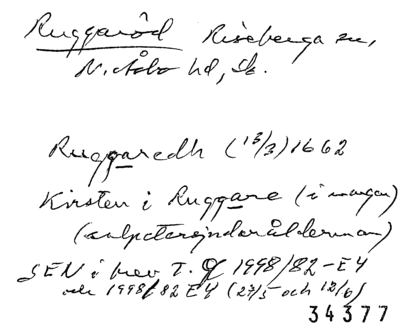 Ruggaröd Riseberga sn,
N. Åsbo hd, Sk.
Ruggaredh (13/3) 1662
Kirsten i Ruggare (i margen)
(salpetersjudarålderman)
SEN i brev T. Of 1998/82-EY
och 1998/82 EY (23/5 och 12/6)
34377